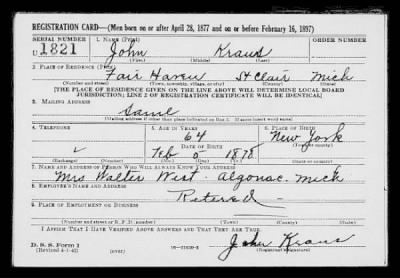 REGISTRATION CARD—(Men born on or after April 28, 1877 and on or before February 16, 1897)
SERIAL NUMBER 1. NAME (Print) ORDER NUMBER
U 1821 John Kraus
(First) (Middle) (Last)
2. PLACE OF RESIDENCE (Print)
Fair Haven St Clair Mich
(Number and street) (Town, township, village, or city) (County) (State)
[THE PLACE OF RESIDENCE GIVEN ON THE LINE ABOVE WILL DETERMINE LOCAL BOARD
JURISDICTION; LINE 2 OF REGISTRATION CERTIFICATE WILL BE IDENTICAL]
3. MAILING ADDRESS
Same
(Mailing address if other than place indicated on line 2. If same insert word same)
4. TELEPHONE 5. AGE IN YEARS 6. PLACE OF BIRTH
64 New York
DATE OF BIRTH (Town or county)
Feb 5 1878
(Exchange) (Number) (Mo.) (Day) (Yr.) (State or country)
7. NAME AND ADDRESS OF PERSON WHO WILL ALWAYS KNOW YOUR ADDRESS
Mrs Walter West - Algonac. Mich
8. EMPLOYER'S NAME AND ADDRESS
Retired
9. PLACE OF EMPLOYMENT OR BUSINESS
(Number and street or R. F. D. number) (Town) (County) (State)
I AFFIRM THAT I HAVE VERIFIED ABOVE ANSWERS AND THAT THEY ARE TRUE.
D. S. S. Form 1 John Kraus
(Revised 4-1-42) (Registrant's signature)